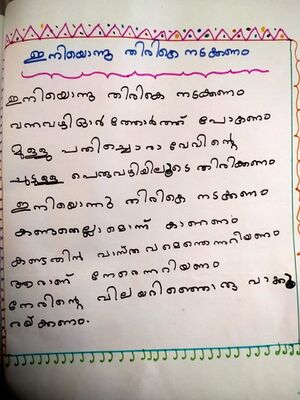 ഇനിയൊന്നു തിരികെ നടക്കണം
ഇനിയൊന്നു തിരികെ നടക്കണം
വന്നവഴിഓർത്തോർത്ത് പോകണം
മുള്ളു പതിച്ചൊരാ വേവിന്റെ
ചുടുള്ള പെരുവഴിയിലൂടെ തിരിക്കണം
ഇനിയൊന്നു തിരികെ നടക്കണം
കണ്ടതെല്ലാമൊന്ന് കാണണം
കണ്ടതിൻ വാസ്തവമെന്തെന്നറിയണം
ആരാണ് നേരെന്നറിയണം
നേരിന്റെ വിലയറിഞ്ഞൊരു വാക്കു
രയ്ക്കണം.